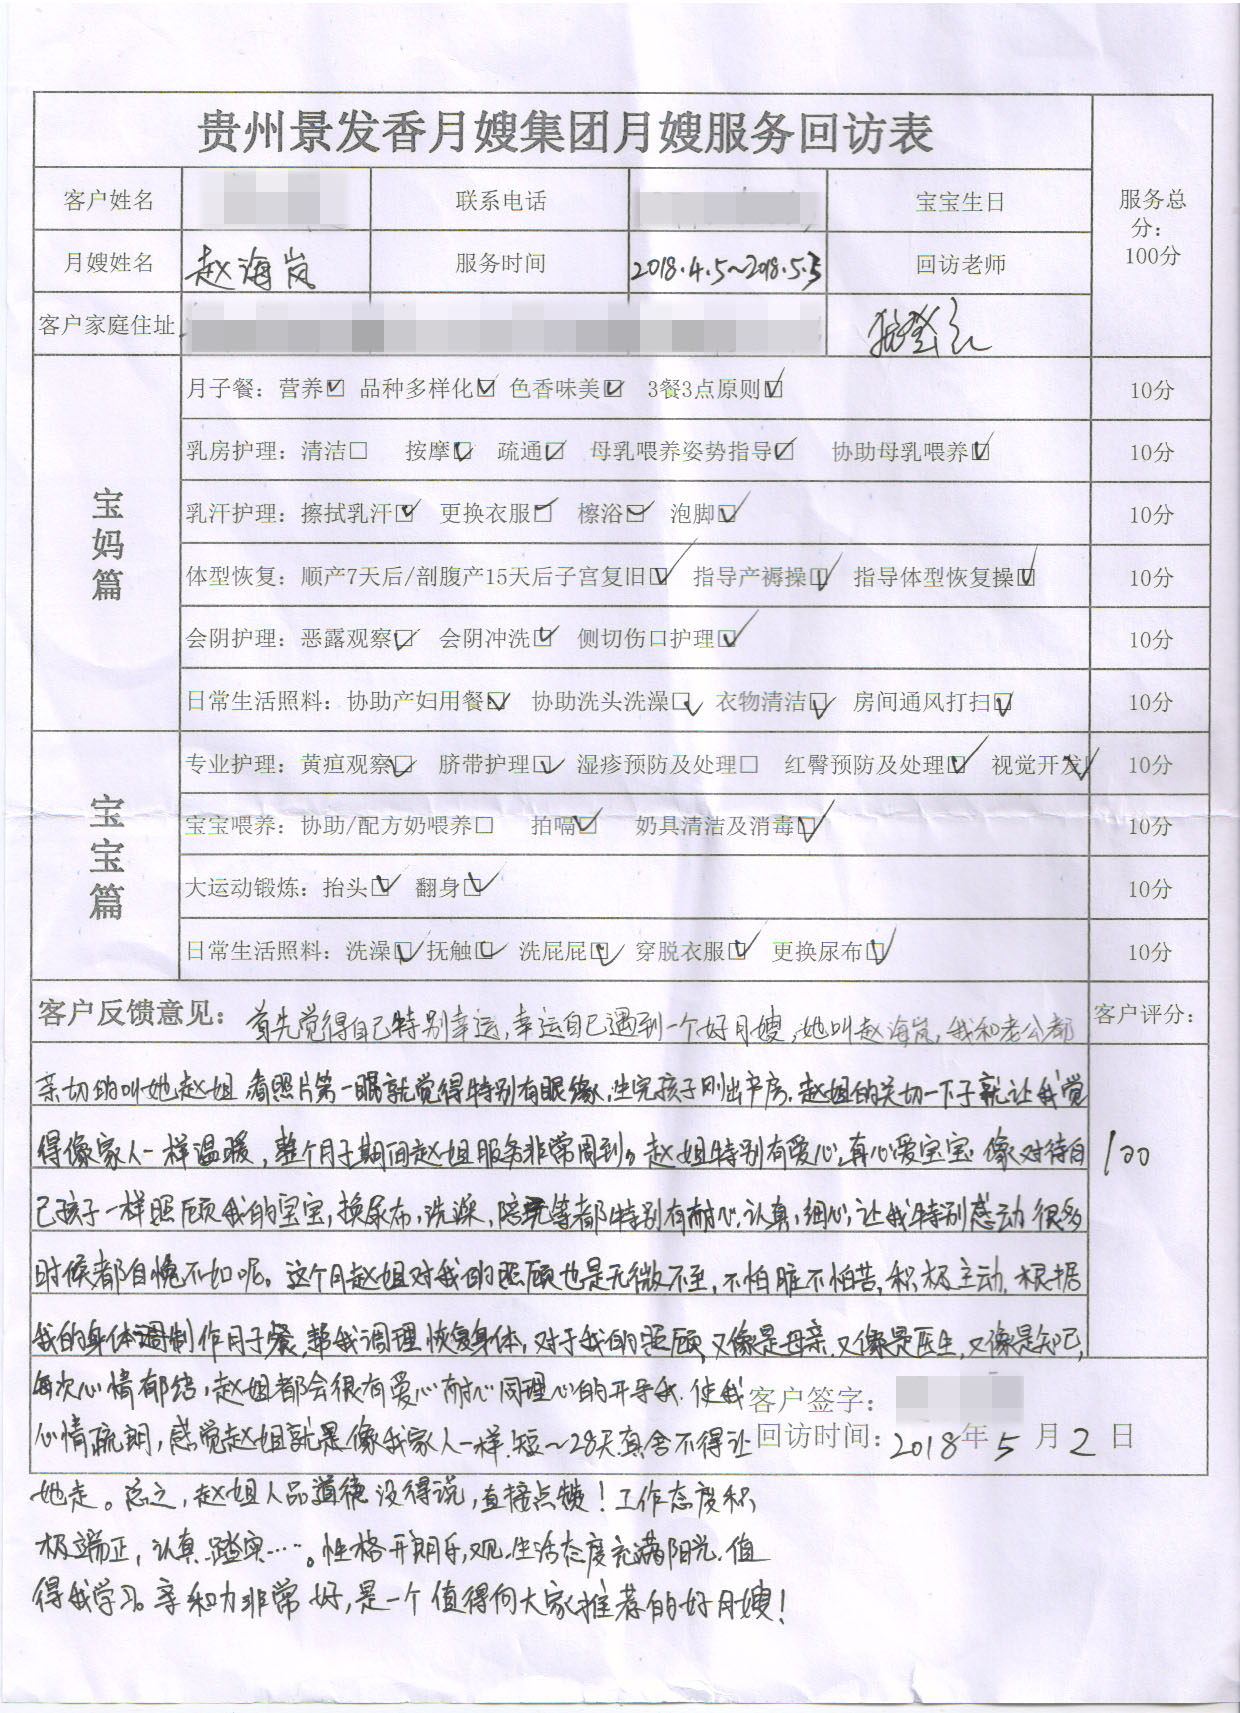 贵州景发香月嫂集团月嫂服务回访表
服务总分：100分
客户姓名 联系电话 宝宝生日
月嫂姓名 赵海岚 服务时间 2018.4.5~2018.5.3 回访老师
客户家庭住址
宝妈篇
月子餐：营养☑ 品种多样化☑ 色香味美☑ 3餐3点原则☑ 10分
乳房护理：清洁□ 按摩☑ 疏通☑ 母乳喂养姿势指导☑ 协助母乳喂养☑ 10分
乳汗护理：擦拭乳汗☑ 更换衣服☑ 檫浴☑ 泡脚☑ 10分
体型恢复：顺产7天后/剖腹产15天后子宫复旧☑ 指导产褥操☑ 指导体型恢复操☑ 10分
会阴护理：恶露观察☑ 会阴冲洗☑ 侧切伤口护理☑ 10分
日常生活照料：协助产妇用餐☑ 协助洗头洗澡☑ 衣物清洁☑ 房间通风打扫☑ 10分
宝宝篇
专业护理：黄疸观察☑ 脐带护理☑ 湿疹预防及处理□ 红臀预防及处理☑ 视觉开发☑ 10分
宝宝喂养：协助/配方奶喂养□ 拍嗝☑ 奶具清洁及消毒☑ 10分
大运动锻炼：抬头☑ 翻身☑ 10分
日常生活照料：洗澡☑ 抚触☑ 洗屁屁☑ 穿脱衣服☑ 更换尿布☑ 10分
客户反馈意见：首先觉得自己特别幸运，幸运自己遇到一个好月嫂，她叫赵海岚，我和老公都 客户评分：
亲切的叫她赵姐，看照片第一眼就觉得特别有眼缘，生完孩子刚出产房，赵姐的关切一下子就让我觉
得像家人一样温暖，整个月子期间赵姐服务非常周到，赵姐特别有爱心，真心爱宝宝，像对待自 100
己孩子一样照顾我的宝宝，换尿布，洗澡，陪玩等都特别有耐心，认真，细心，让我特别感动，很多
时候都自愧不如呢。这个月赵姐对我的照顾也是无微不至，不怕脏不怕苦，积极主动，根据
我的身体调制作月子餐，帮我调理恢复身体，对于我的照顾，又像是母亲，又像是医生，又像是知己，
每次心情郁结，赵姐都会很有爱心耐心同理心的开导我，使我 客户签字：
心情疏朗，感觉赵姐就是像我家人一样，短~28天真舍不得让 回访时间：2018年5月2日
她走。总之，赵姐人品道德没得说，直接点赞！工作态度积
极端正，认真，踏实……。性格开朗乐观，生活态度充满阳光，值
得我学习。亲和力非常好，是一个值得向大家推荐的好月嫂！